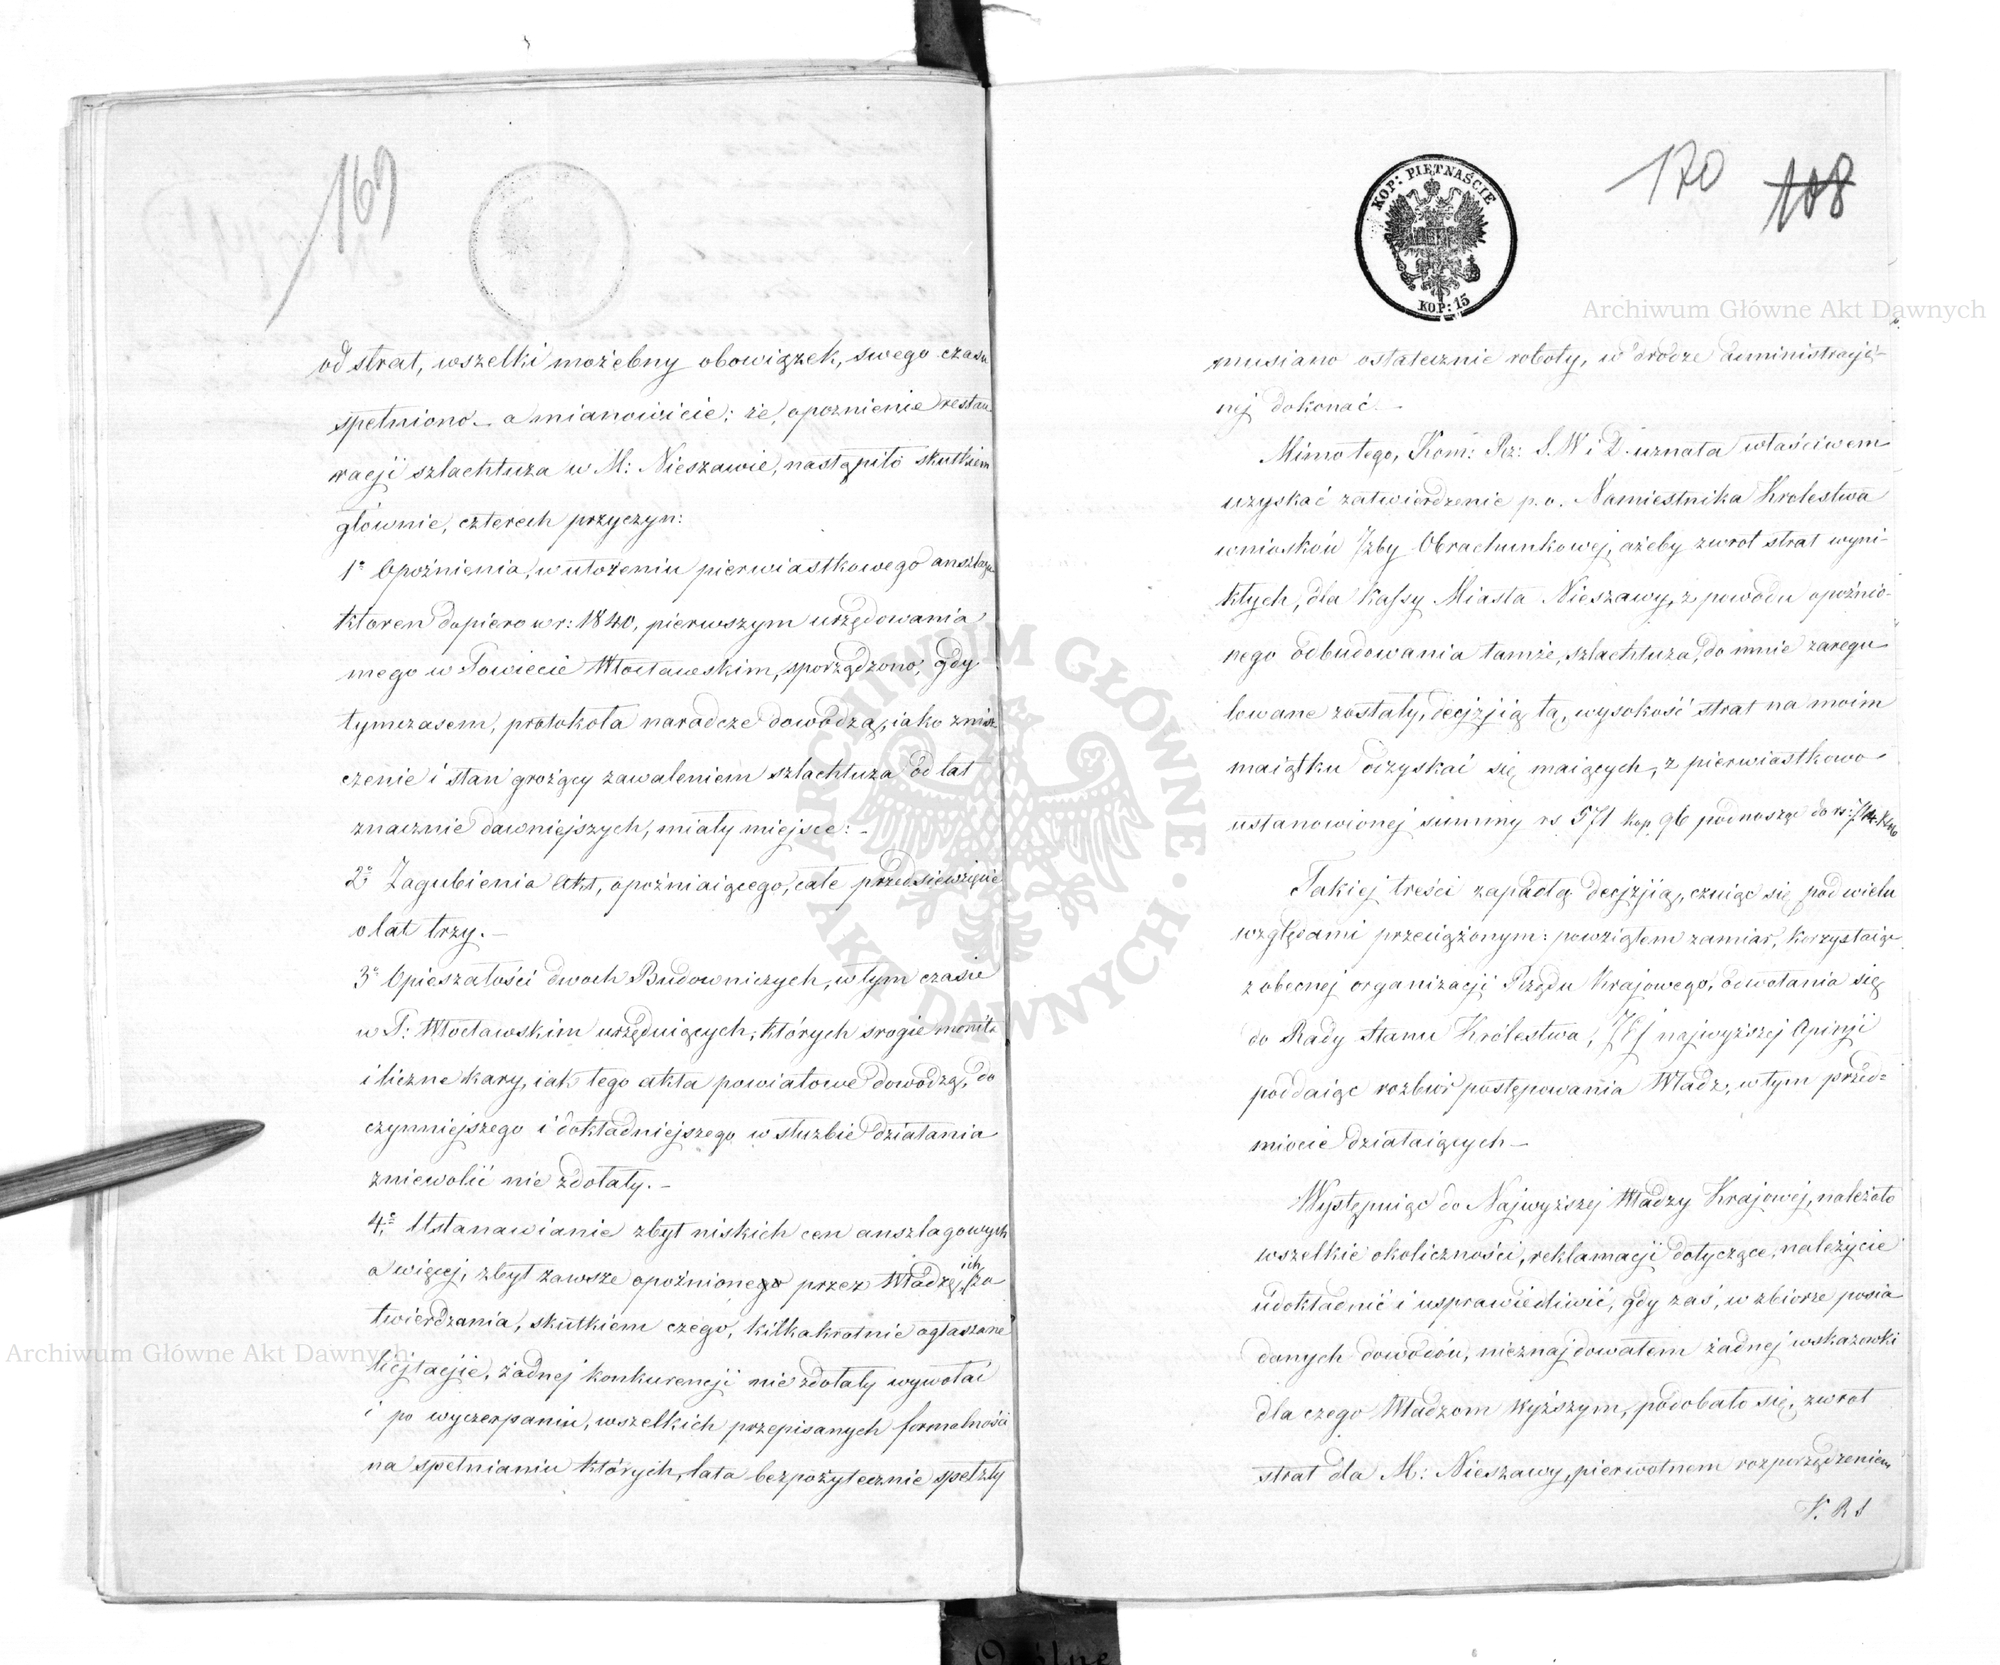 169
od strat, wszelki możebny obowiązek, swego czasu
spełniono_ a mianowicie: że, opoznienie restau
racji szlachtuza w M: Nieszawie, nastąpiło skutkiem
głównie, czterech przyczyn:
1º Opoźnienia, w ułożeniu pierwiastkowego anszlagu
ktoren dopiero w r: 1840, pierwszym urzędowania
mego w Powiecie Włocławskim, sporządzono, gdy
tymczasem, protokoła naradcze dowodzą, iako znisz
czenie i stan grożący zawaleniem szlachtuza od lat
znacznie dawniejszych, miały miejsce: _
2º Zagubienia Akt, opoźniaiącego, całe przedsiewzięcie
o lat trzy. _
3º Opieszałości dwoch Budowniczych, w tym czasie
w P: Włocławskim urzęduiących, których srogie monita
i liczne kary, iak tego akta powiatowe dowodzą, do
czynniejszego i dokładniejszego w służbie działania
zniewolić nie zdołały. _
4º Ustanawianie zbyt niskich cen anszlagowych
a więcej, zbyt zawsze opoźnionego przez Władzę, ich za
twierdzania, skutkiem czego, kilkakrotnie ogłaszane
licjtacjie, żadnej konkurencji nie zdołały wywołać
i po wyczerpaniu, wszelkich przepisanych formalności
na spełnianiu których, lata bezpożytecznie spełzły
KOP: PIĘTNAŚCIE
KOP: 15
170 108
musiano ostatecznie roboty, w drodze administracyj-
nej dokonać. _
Mimo tego, Kom: Rz: S. W i D. uznała właściwem
uzyskać zatwierdzenie p. o. Namiestnika Krolestwa
wnioskow Jzby Obrachunkowej, ażeby zwrot strat wyni-
kłych, dla Kassy Miasta Nieszawy, z powodu opoźnio-
nego odbudowania tamże, szlachtuza, do mnie zaregu
lowane zostały, decjzjią tą, wysokość strat na moim
maiątku odzyskać się maiących, z pierwiastkowo
ustanowionej summy rs 571 kop 96 podnosząc do rs:
Takiej treści zapadłą decjzjią, czuiąc się pod wielu
względami przeciążonym: powziąłem zamiar, korzystaiąc
z obecnej organizacji Rządu Krajowego, odwołania się
do Rady Stanu Królestwa, Jej najwyższej Opinji
poddaiąc rozbiór postępowania Władz, w tym przed-
miocie działaiących _
Występuiąc do Najwyższej Władzy Krajowej, należało
wszelkie okoliczności, reklamacji dotyczące, należycie
udokładnić i usprawiedliwić, gdy zaś, w zbiorze posia
danych dowodów, nieznajdowałem żadnej wskazowki
dla czego Władzom wyższym, podobało się, zwrot
strat dla M: Nieszawy, pierwotnem rozporządzeniem
K. R S
Archiwum Główne Akt Dawnych
Archiwum Główne Akt Dawnych
ARCHIWUM GŁÓWNE AKT DAWNYCH